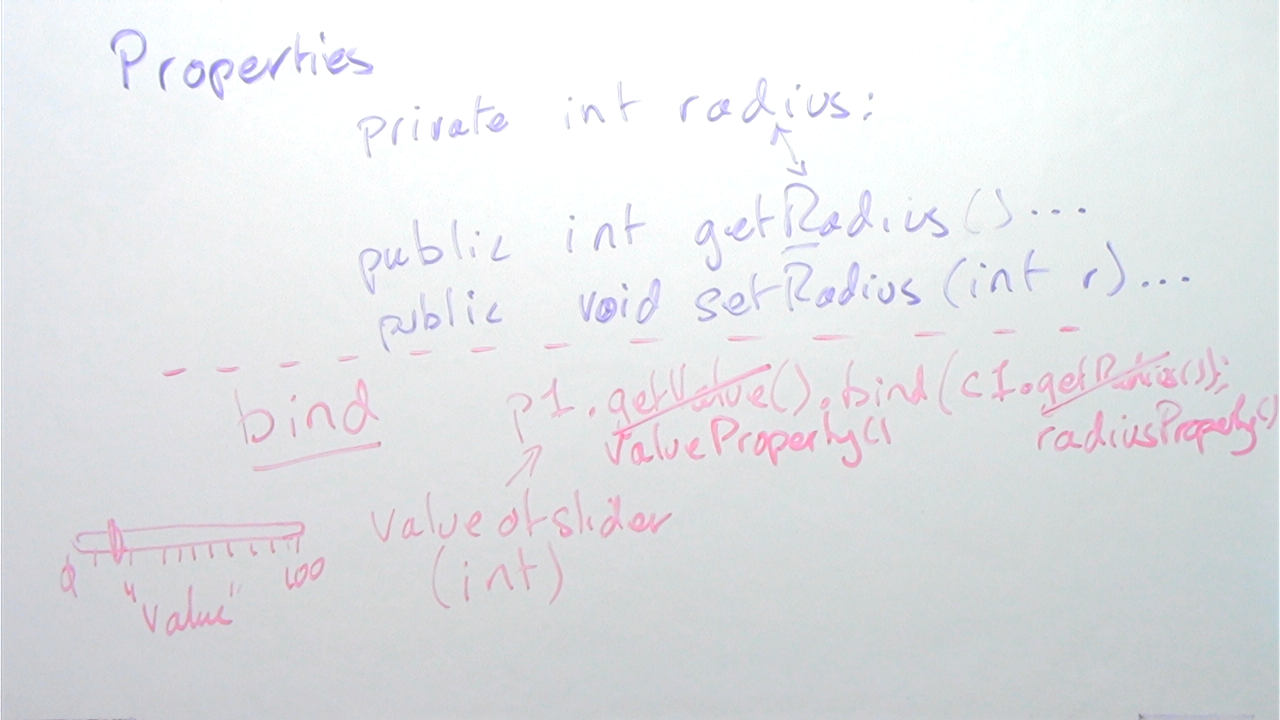 Properties
private int radius:
public int getRadius()...
public void setRadius(int r)...
bind p1.getValue().bind(c1.getRadius());
valueProperty() radiusProperty()
value of slider
(int)
0 100
"Value"